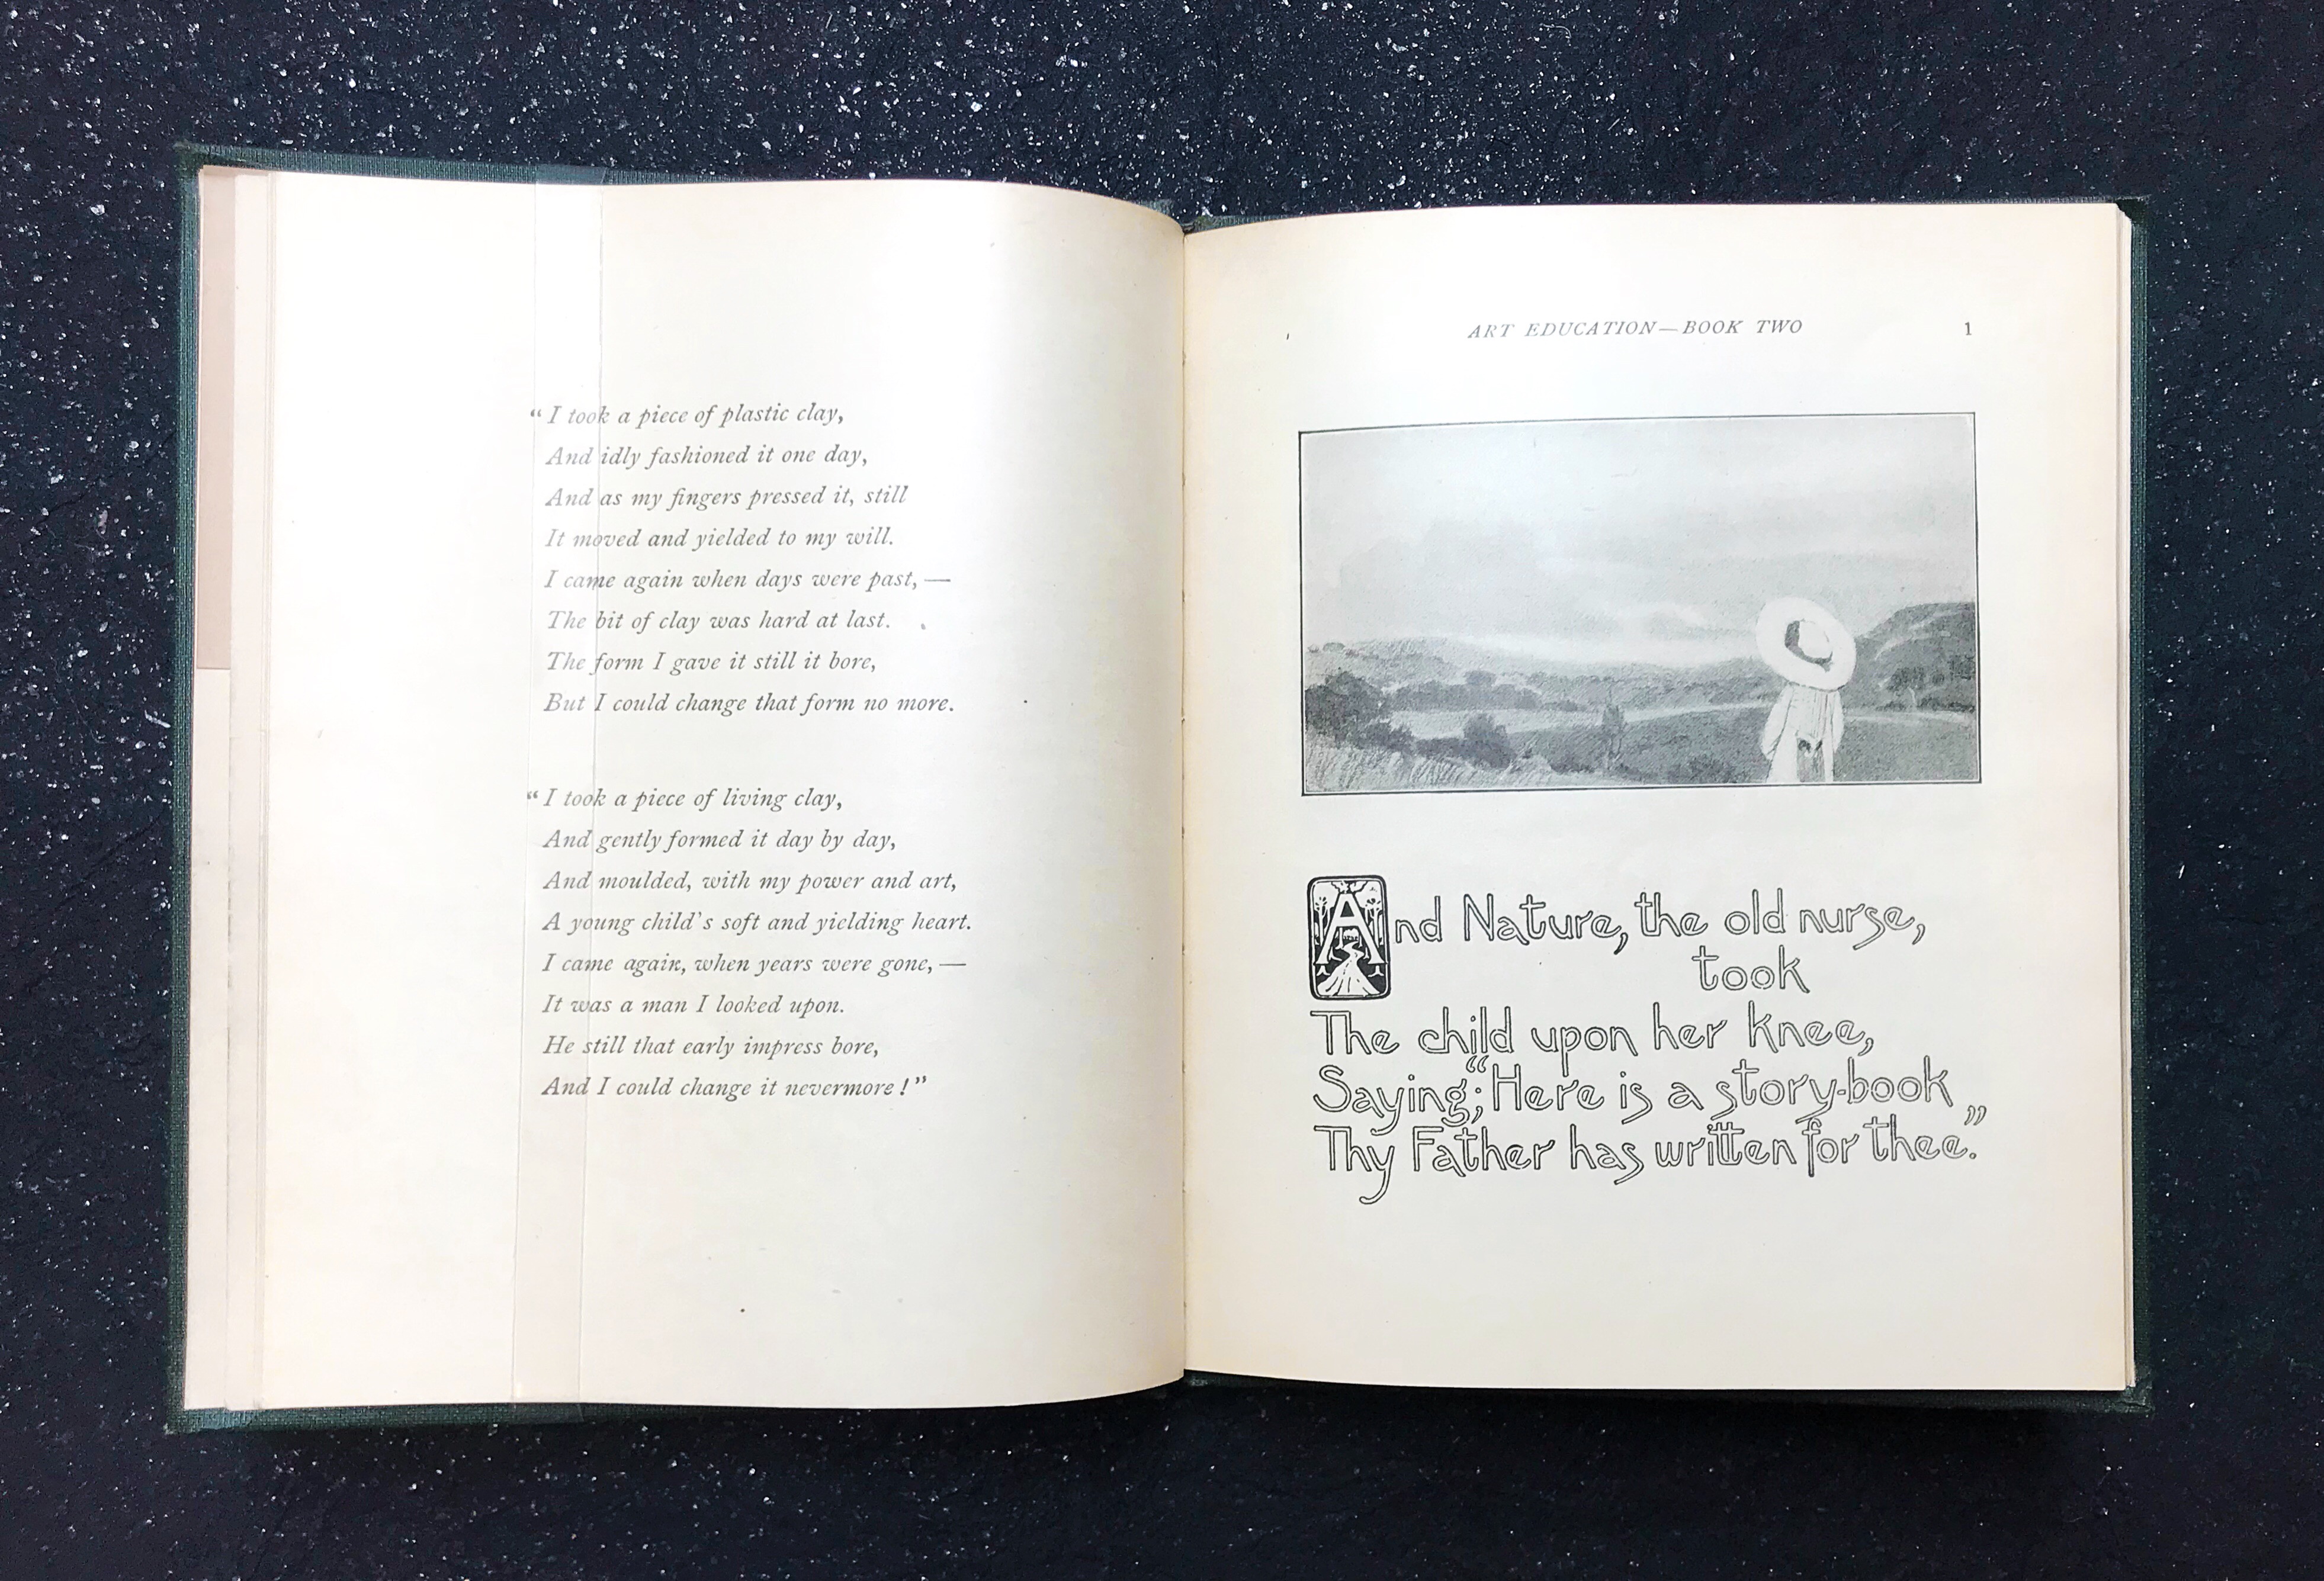 “ I took a piece of plastic clay,
And idly fashioned it one day,
And as my fingers pressed it, still
It moved and yielded to my will.
I came again when days were past, —
The bit of clay was hard at last.
The form I gave it still it bore,
But I could change that form no more.
“ I took a piece of living clay,
And gently formed it day by day,
And moulded, with my power and art,
A young child's soft and yielding heart.
I came again, when years were gone, —
It was a man I looked upon.
He still that early impress bore,
And I could change it nevermore ! ”
ART EDUCATION—BOOK TWO 1
And Nature, the old nurse,
took
The child upon her knee,
Saying; “Here is a story-book
Thy Father has written for thee.”